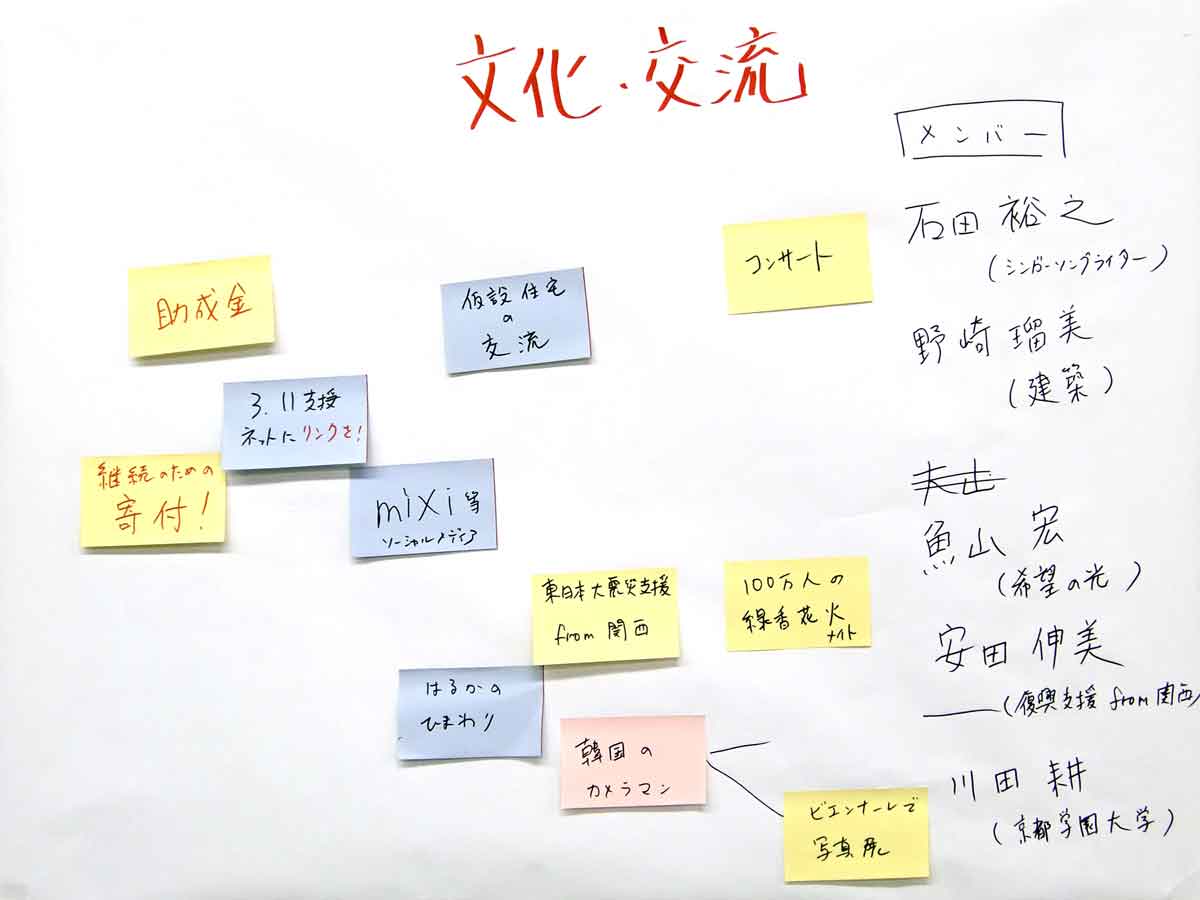 文化・交流
メンバー
石田 裕之
(シンガーソングライター)
野崎 瑠美
(建築)
魚山 宏
(希望の光)
安田 伸美
(復興支援 from 関西)
川田 耕
(京都学園大学)
コンサート
仮設住宅
の
交流
助成金
3.11支援
ネットにリンクを!
継続のための
寄付!
mixi等
ソーシャルメディア
東日本大震災支援
from 関西
100万人の
線香花火
ナイト
はるかの
ひまわり
韓国の
カメラマン
ビエンナーレで
写真展